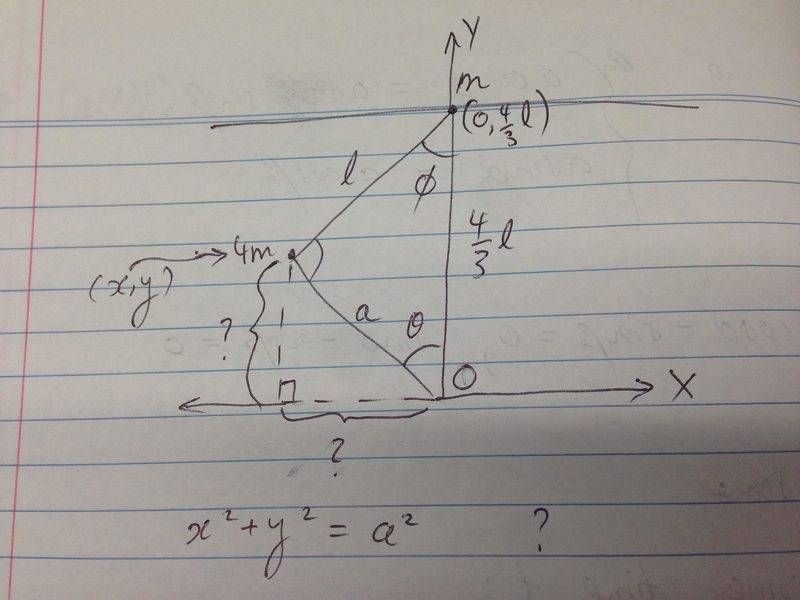 Y
m
(0, 4/3 l)
l
ϕ
4/3 l
(x,y) → 4m
a
θ
?
O
X
?
x² + y² = a² ?